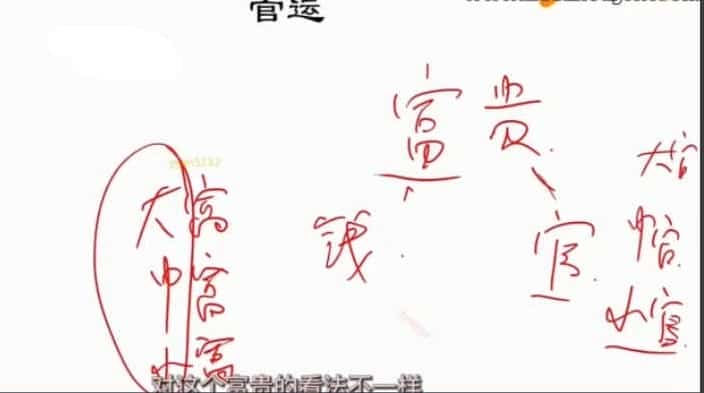 官运
富贵
钱 官
大富
中富
小富
大官
中官
小官
对这个富贵的看法不一样